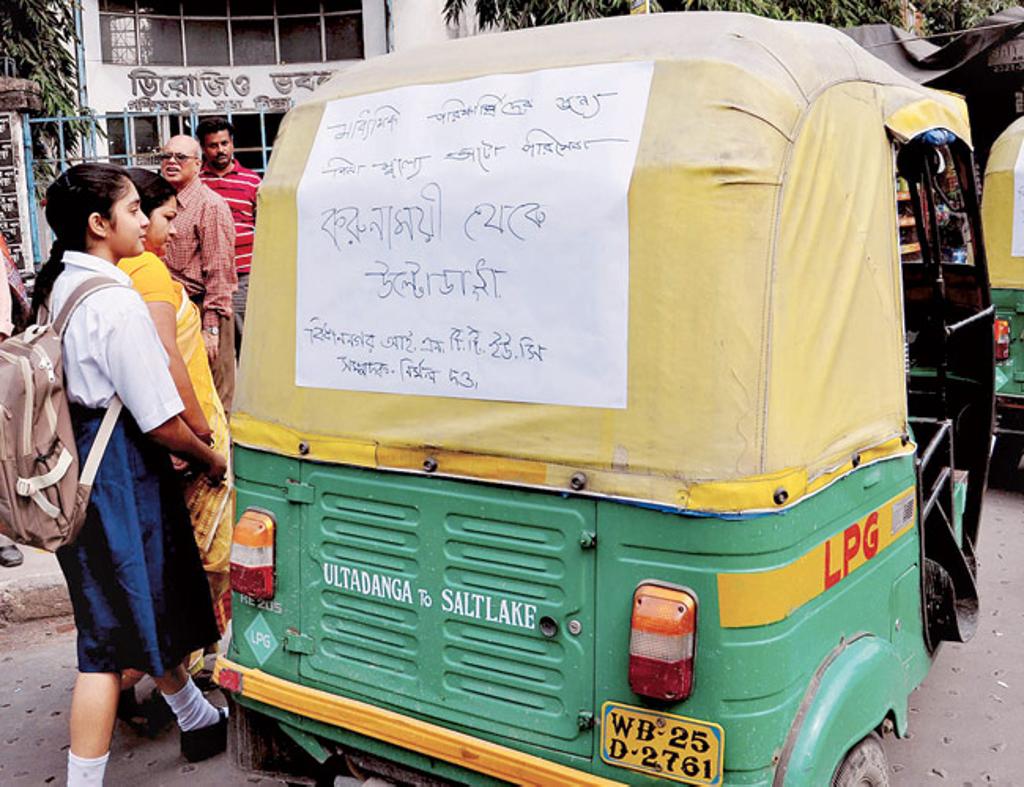 ডিরোজিও ভবন
মাধ্যমিক পরিক্ষার্থিদের জন্য
বিনা মূল্যে অটো পরিসেবা
করুনাময়ী থেকে
উল্টোডাঙ্গা
বিধাননগর আই.এন.টি.টি.ইউ.সি
সম্পাদক- নির্মল দত্ত,
LPG
ULTADANGA To SALTLAKE
RE 205
LPG
WB-25
D-2761